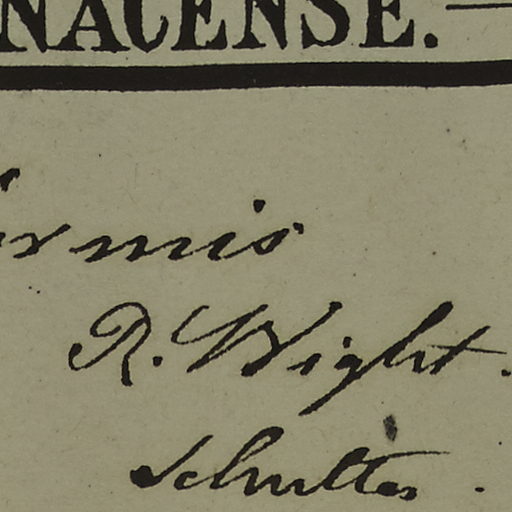 NACENSE.—
ormis
R. Wight.
Schultes.